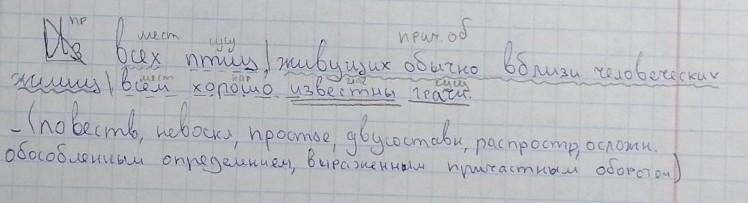 пр мест сущ прич. об
Из всех птиц, живущих обычно вблизи человеческих
мест нар сущ
жилищ, всем хорошо известны грачи.
– (повеств, невоскл, простое, двусоставн, распростр, осложн.
обособленным определением, выраженным причастным оборотом)